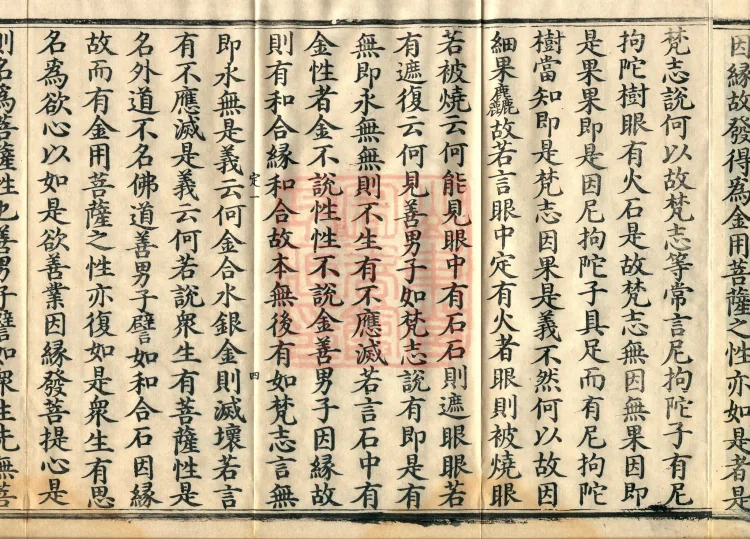 因緣故發得為金用菩薩之性亦如是者是
梵志說何以故梵志等常言尼拘陀子有尼
拘陀樹眼有火石是故梵志無因無果因即
是果果即是因尼拘陀子具足而有尼拘陀
樹當知即是梵志因果是義不然何以故因
細果麤故若言眼中定有火者眼則被燒眼
若被燒云何能見眼中有石石則遮眼眼若
有遮復云何見善男子如梵志說有即是有
無即永無無則不生有不應滅若言石中有
金性者金不說性性不說金善男子因緣故
則有和合緣和合故本無後有如梵志言無
定一
四
即永無是義云何金合水銀金則滅壞若言
有不應滅是義云何若說衆生有菩薩性是
名外道不名佛道善男子譬如和合石因緣
故而有金用菩薩之性亦復如是衆生有思
名為欲心以如是欲善業因緣發菩提心是
則名為菩薩性也善男子譬如衆生先無菩